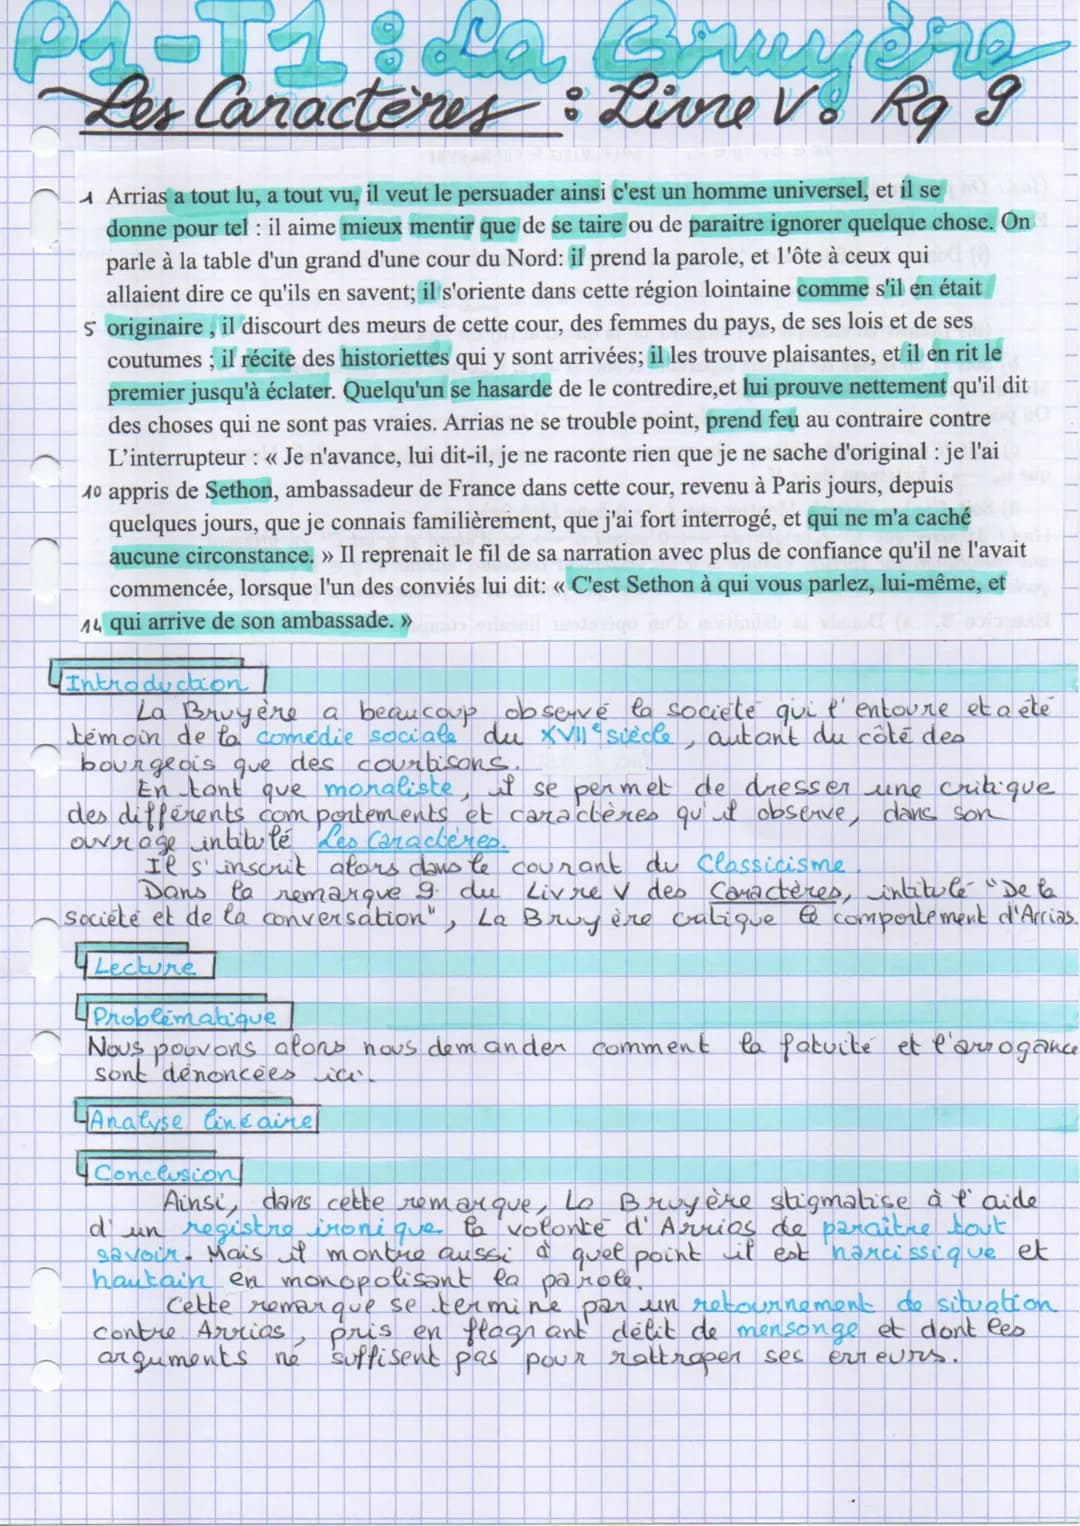 P1-T1 : La Bruyère
Les Caractères : Livre V : Rq 9
1 Arrias a tout lu, a tout vu, il veut le persuader ainsi c'est un homme universel, et il se
donne pour tel : il aime mieux mentir que de se taire ou de paraitre ignorer quelque chose. On
parle à la table d'un grand d'une cour du Nord: il prend la parole, et l'ôte à ceux qui
allaient dire ce qu'ils en savent; il s'oriente dans cette région lointaine comme s'il en était
5 originaire , il discourt des meurs de cette cour, des femmes du pays, de ses lois et de ses
coutumes ; il récite des historiettes qui y sont arrivées; il les trouve plaisantes, et il en rit le
premier jusqu'à éclater. Quelqu'un se hasarde de le contredire,et lui prouve nettement qu'il dit
des choses qui ne sont pas vraies. Arrias ne se trouble point, prend feu au contraire contre
L'interrupteur : « Je n'avance, lui dit-il, je ne raconte rien que je ne sache d'original : je l'ai
10 appris de Sethon, ambassadeur de France dans cette cour, revenu à Paris jours, depuis
quelques jours, que je connais familièrement, que j'ai fort interrogé, et qui ne m'a caché
aucune circonstance. » Il reprenait le fil de sa narration avec plus de confiance qu'il ne l'avait
commencée, lorsque l'un des conviés lui dit: « C'est Sethon à qui vous parlez, lui-même, et
14 qui arrive de son ambassade. »
Introduction
La Bruyère a beaucoup observé la société qui l'entoure et a été
témoin de la comédie sociale du XVIIe siècle, autant du côté des
bourgeois que des courtisons.
En tant que moraliste, il se permet de dresser une critique
des différents comportements et caractères qu'il observe, dans son
ouvrage intitulé Les Caractères.
Il s'inscrit alors dans le courant du Classicisme.
Dans la remarque 9 du Livre V des Caractères, intitulé "De la
société et de la conversation", La Bruyère critique le comportement d'Arrias.
Lecture
Problématique
Nous pouvons alors nous demander comment la fatuité et l'arrogance
sont dénoncées ici.
Analyse linéaire
Conclusion
Ainsi, dans cette remarque, La Bruyère stigmatise à l'aide
d'un registre ironique la volonté d'Arrias de paraître tout
savoir. Mais il montre aussi à quel point il est narcissique et
hautain en monopolisant la parole.
Cette remarque se termine par un retournement de situation
contre Arrias, pris en flagrant délit de mensonge et dont les
arguments ne suffisent pas pour rattraper ses erreurs.